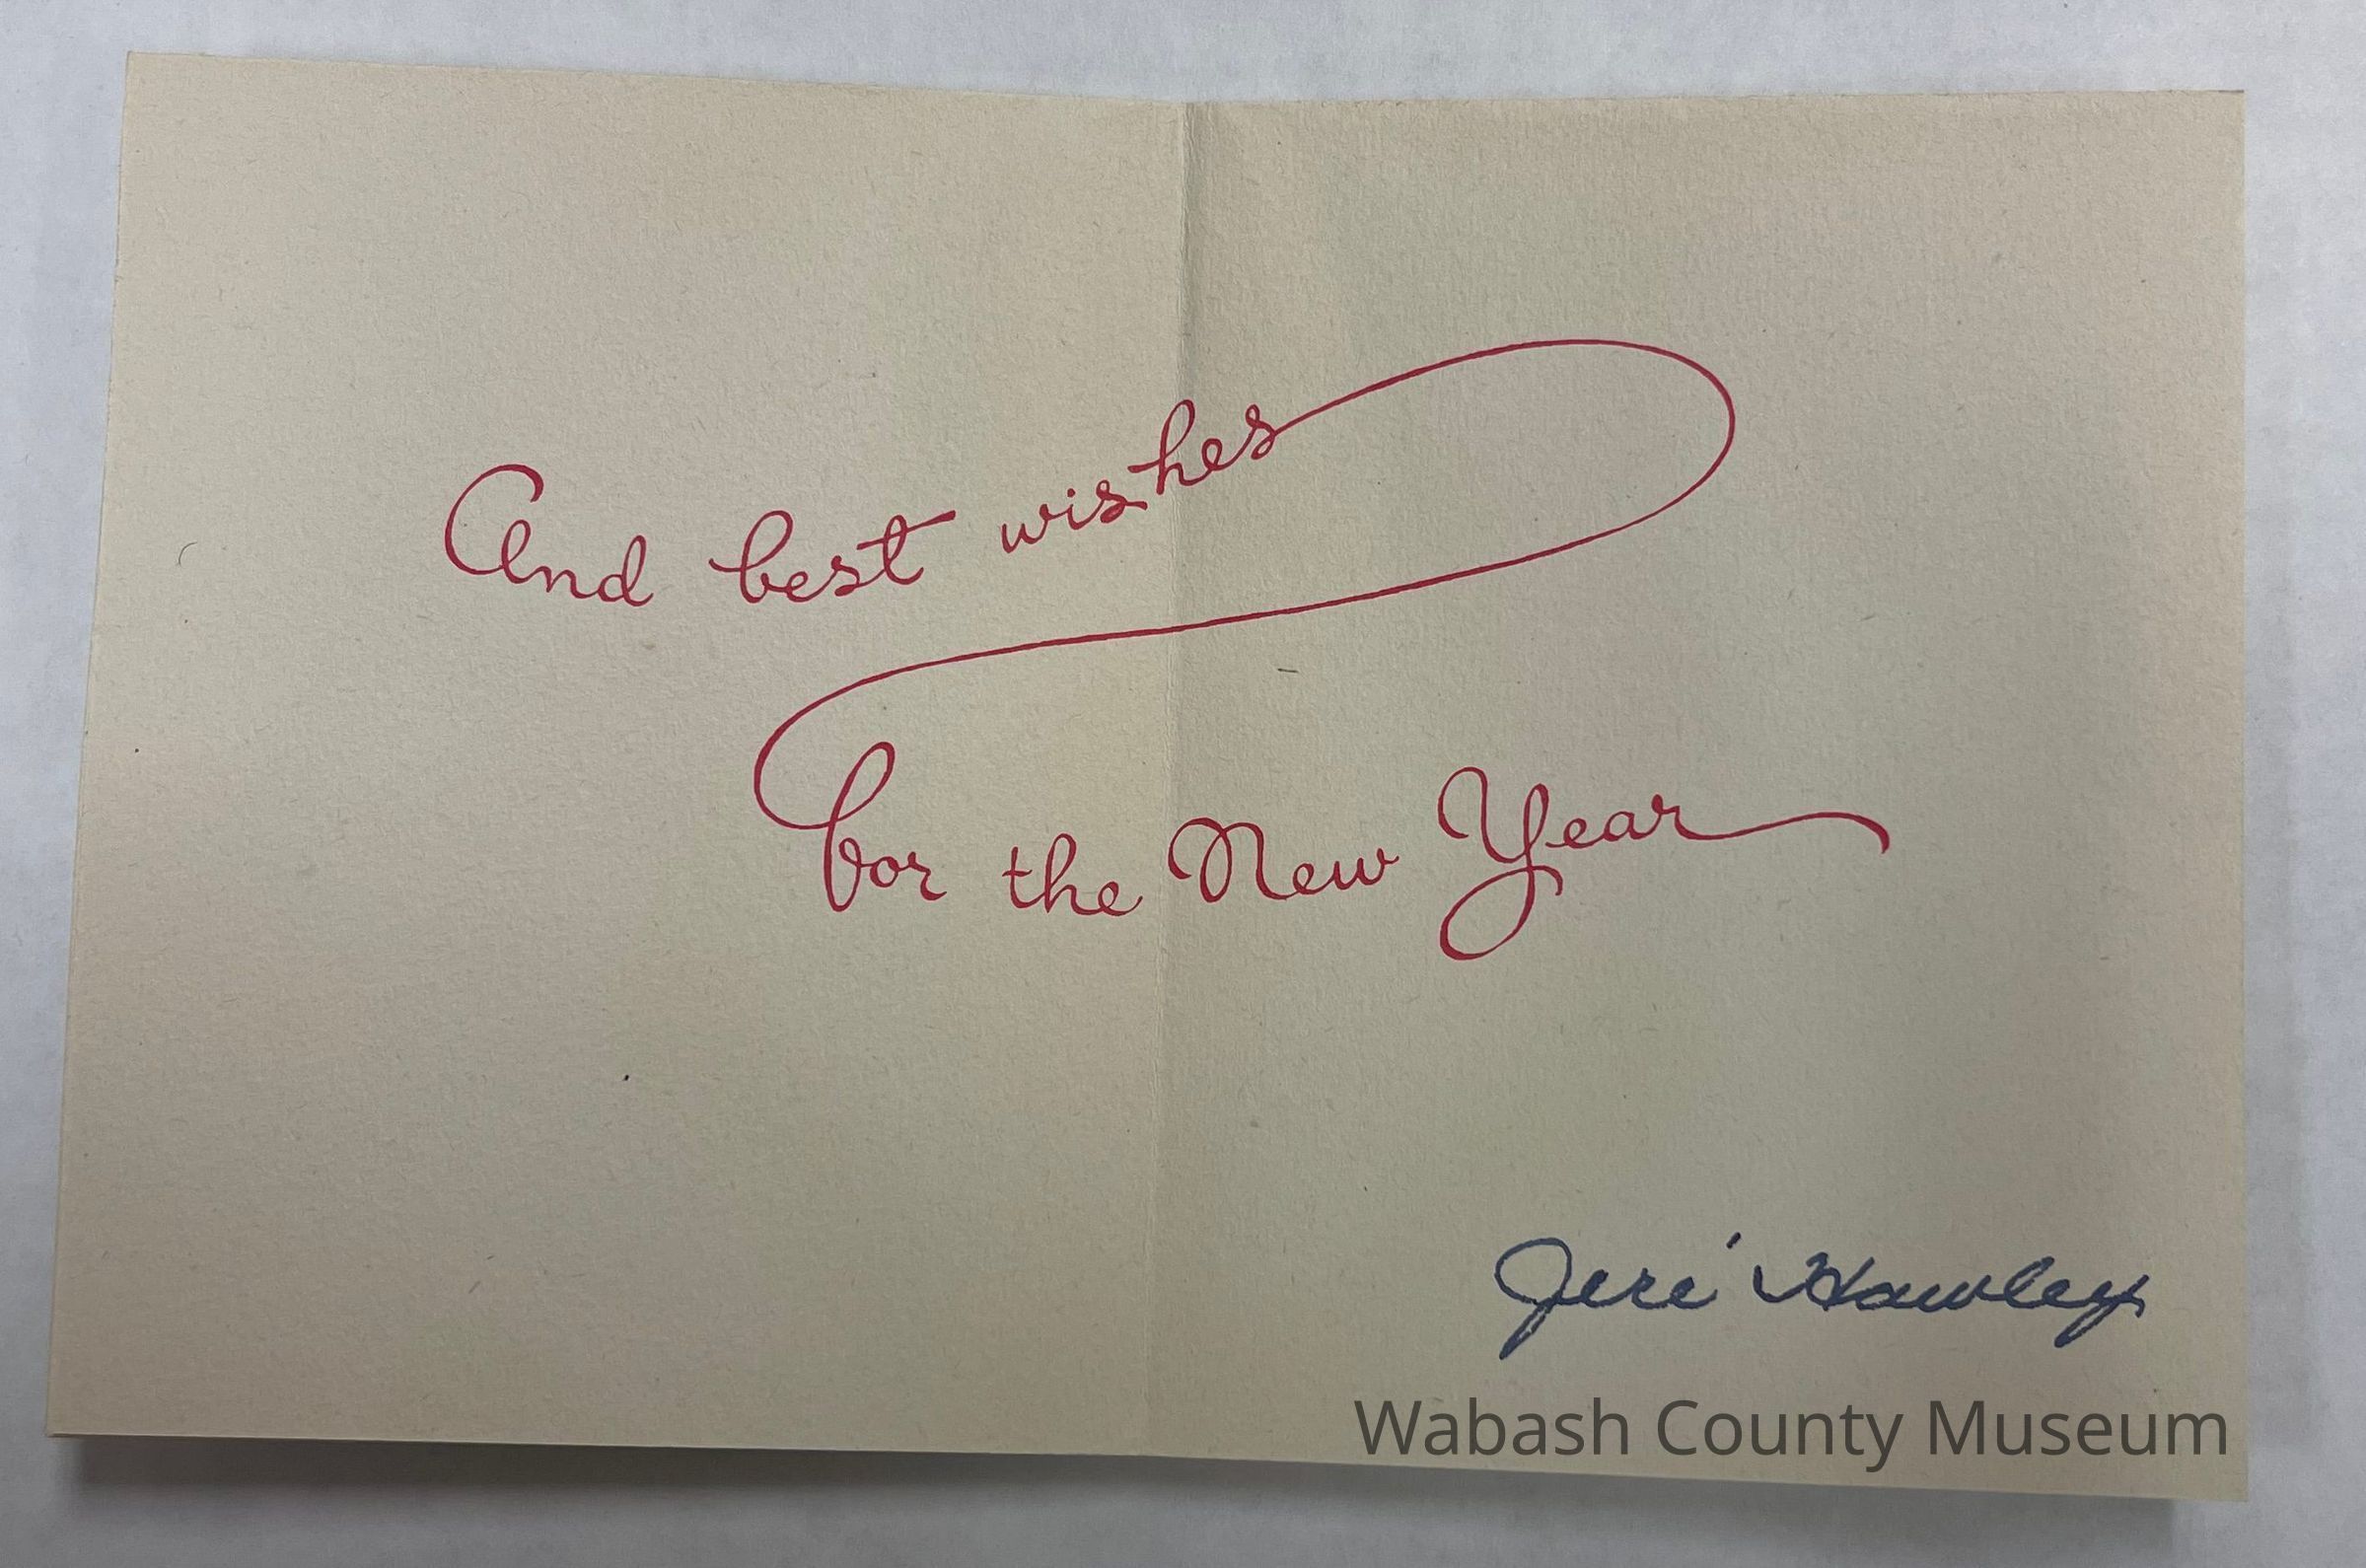 And best wishes
for the New Year
Jeri Hawley
Wabash County Museum